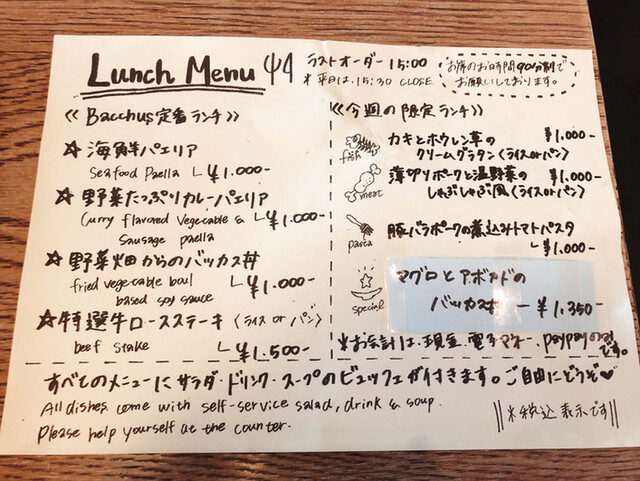 Lunch Menu
ラストオーダー 15:00
※平日は、15:30 CLOSE
お席のお時間90分制で
お願いしております。
《Bacchus定番ランチ》
☆海鮮パエリア
Seafood Paella ¥1.000-
☆野菜たっぷりカレーパエリア
Curry flavored Vegetable & ¥1.000-
Sausage paella
☆野菜畑からのバッカス丼
fried vegetable boul ¥1.000-
based soy sauce
☆特選牛ロースステーキ〈ライス or パン〉
beef stake ¥1.500-
《今週の限定ランチ》
fish
カキとホウレン草の ¥1.000-
クリームグラタン(ライスorパン)
meat
薄切りポークと温野菜の ¥1.000-
しゃぶしゃぶ風(ライスorパン)
pasta
豚バラポークの煮込みトマトパスタ
¥1.000-
special
マグロとアボカドの
バッカス丼 ¥1.350-
※お会計は、現金、電子マネー、paypayのみです。
すべてのメニューにサラダ・ドリンク・スープのビュッフェが付きます。ご自由にどうぞ♡
All dishes come with self-service salad, drink & soup.
Please help yourself at the counter.
※税込表示です